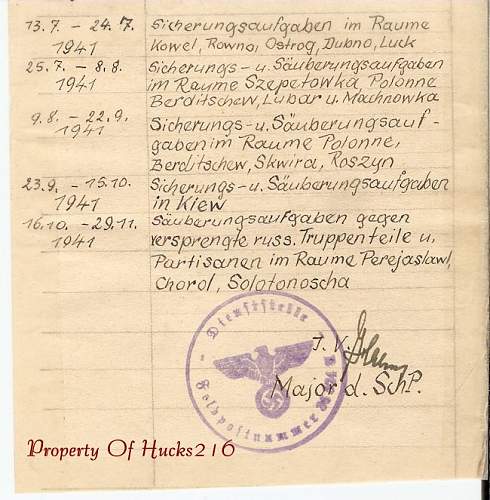 13.7. – 24.7. Sicherungsaufgaben im Raume
1941 Kowel, Rowno, Ostrog, Dubno, Luck
25.7. – 8.8. Sicherungs- u. Säuberungsaufgaben
1941 im Raume Szepetowka, Polonne
Berditschew, Lubar u. Machnowka
9.8. – 22.9. Sicherungs- u. Säuberungsauf-
1941 gaben im Raume Polonne,
Berditschew, Skwira, Roszyn
23.9. – 15.10. Sicherungs- u. Säuberungsaufgaben
1941 in Kiew
16.10. – 29.11. Säuberungsaufgaben gegen
1941 versprengte russ. Truppenteile u.
Partisanen im Raume Perejaslawl,
Chorol, Solotonoscha
– Dienststelle
Feldpostnummer
J. V.
Major d. SchP.
Property Of Hucks216